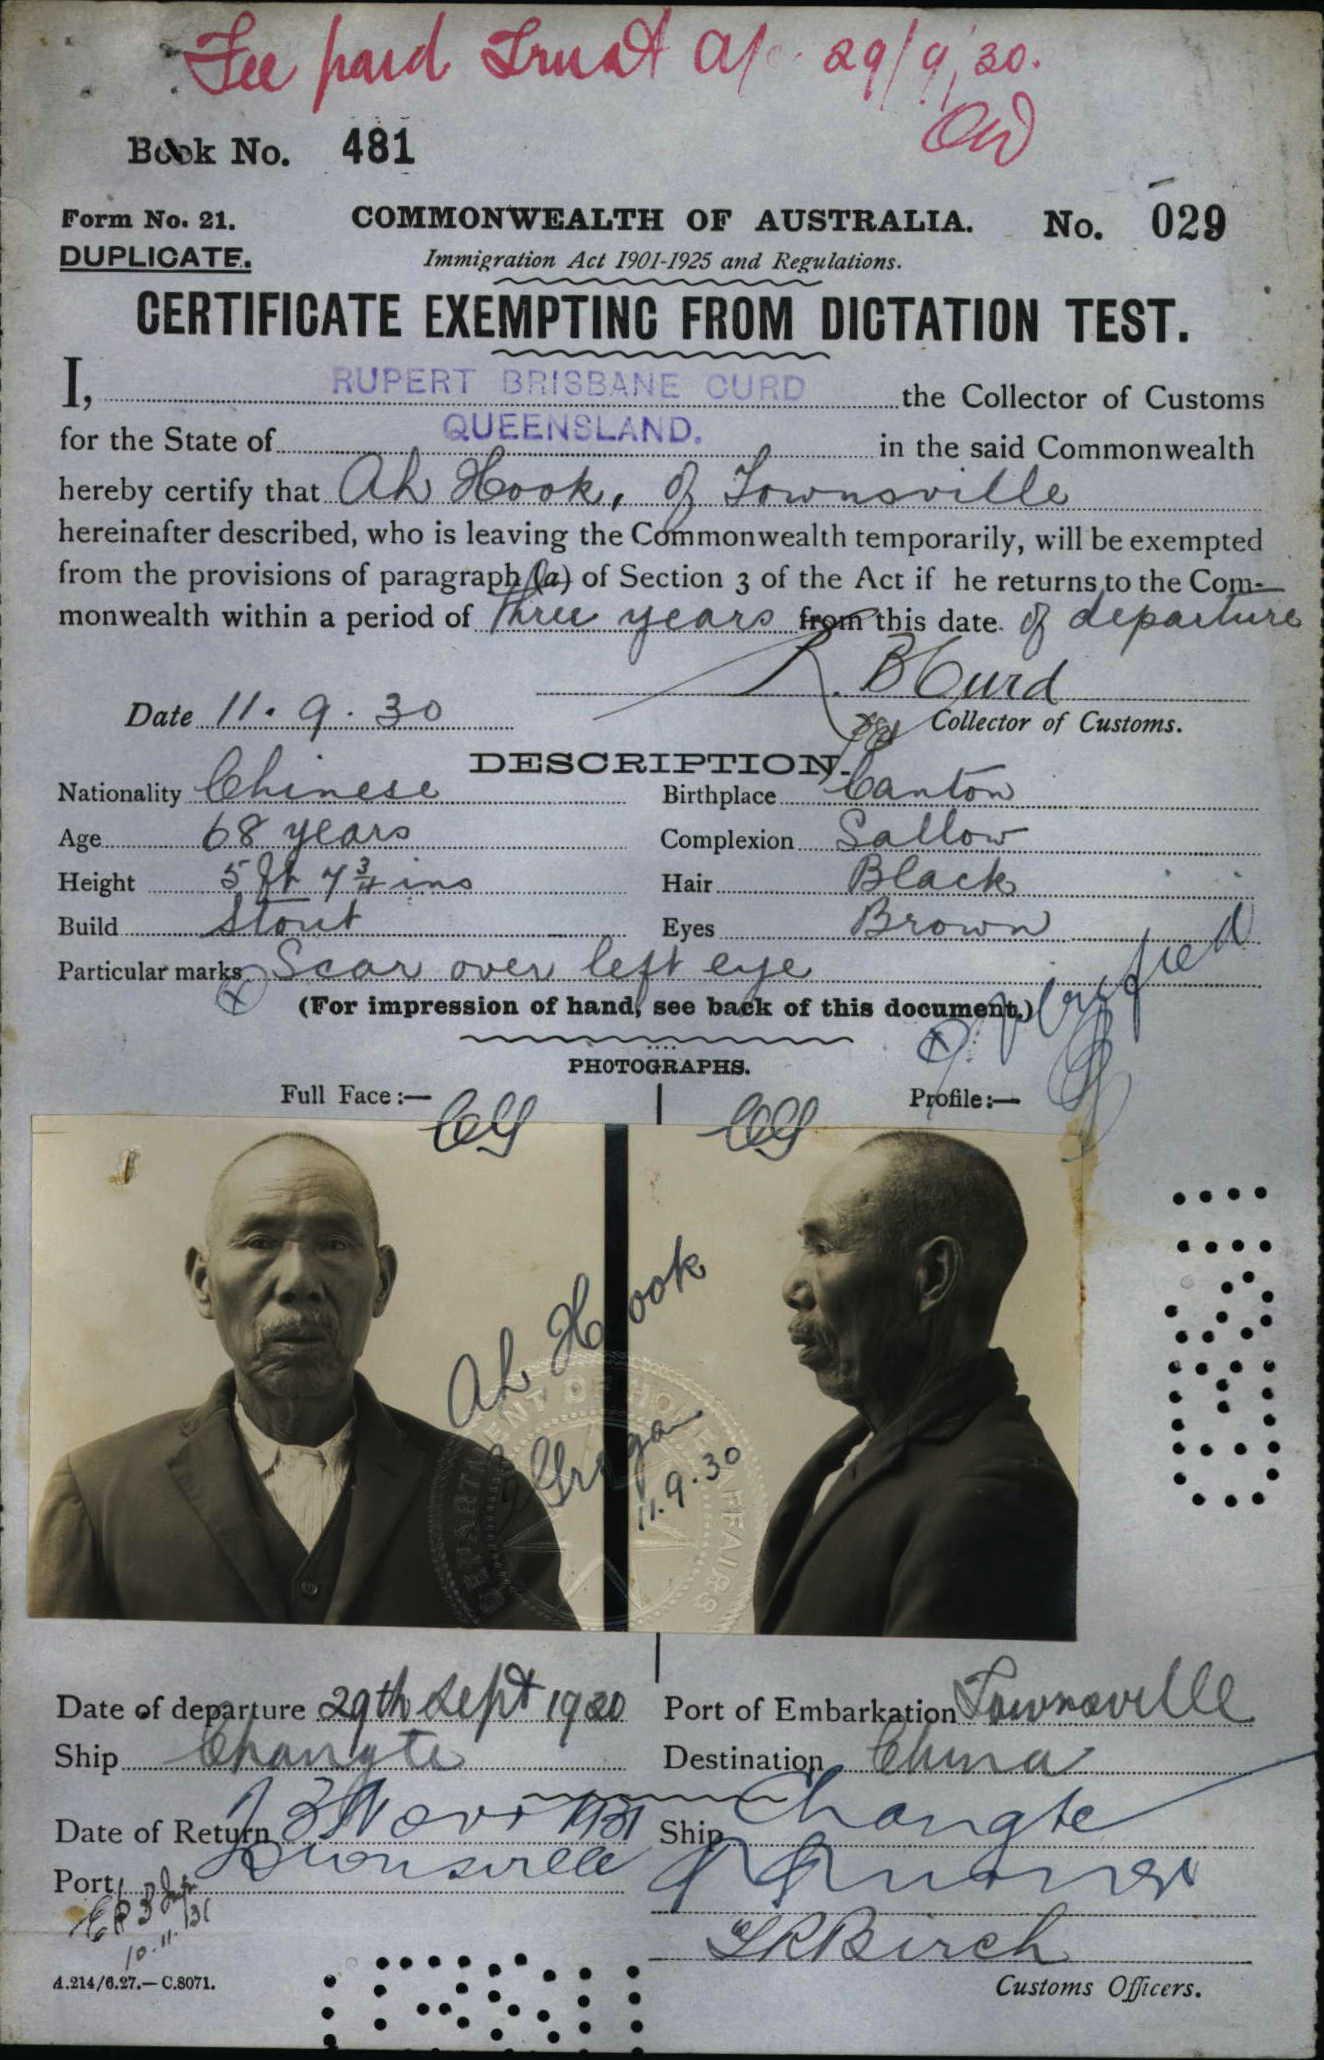 Fee paid Trust a/c 29/9/30.
Book No. 481
Form No. 21. COMMONWEALTH OF AUSTRALIA. No. 029
DUPLICATE. Immigration Act 1901-1925 and Regulations.
CERTIFICATE EXEMPTING FROM DICTATION TEST.
I, RUPERT BRISBANE CURD the Collector of Customs
for the State of QUEENSLAND. in the said Commonwealth
hereby certify that Ah Hook, of Townsville
hereinafter described, who is leaving the Commonwealth temporarily, will be exempted
from the provisions of paragraph (a) of Section 3 of the Act if he returns to the Com-
monwealth within a period of three years from this date of departure
R. B Curd
Date 11.9.30 Collector of Customs.
DESCRIPTION.
Nationality Chinese Birthplace Canton
Age 68 years Complexion Sallow
Height 5 ft 7 3/4 ins Hair Black
Build Stout Eyes Brown
Particular marks Scar over left eye
(For impression of hand, see back of this document.)
PHOTOGRAPHS.
Full Face:— Profile:—
Ah Hook
11.9.30
DEPARTMENT OF HOME AFFAIRS
Date of departure 29th Sept 1930 Port of Embarkation Townsville
Ship Changte Destination China
Date of Return 3 Nov 1931 Ship Changte
Port Townsville
10.11.31
Birch
A.214/6.27.—C.8071. Customs Officers.